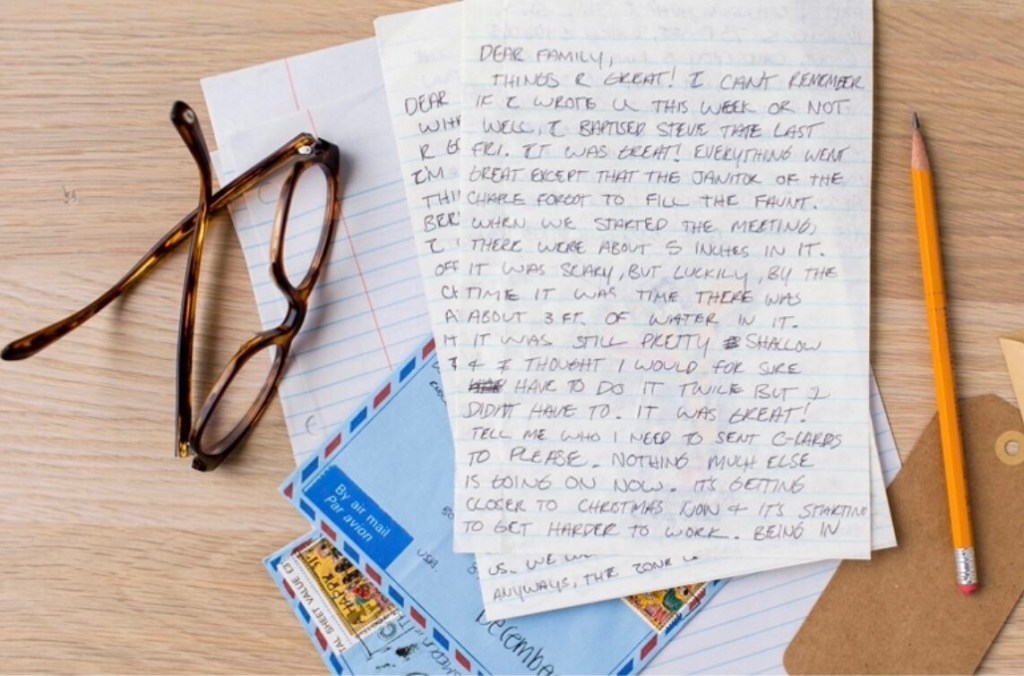 DEAR FAMILY,
THINGS R GREAT! I CAN'T REMEMBER
IF I WROTE U THIS WEEK OR NOT
WELL, I BAPTISED STEVE TATE LAST
FRI. IT WAS GREAT! EVERYTHING WENT
GREAT EXCEPT THAT THE JANITOR OF THE
FORGOT TO FILL THE FAUNT.
WHEN WE STARTED THE MEETING,
THERE WERE ABOUT 5 INCHES IN IT.
IT WAS SCARY, BUT LUCKILY, BY THE
TIME IT WAS TIME THERE WAS
ABOUT 3 FT. OF WATER IN IT.
IT WAS STILL PRETTY SHALLOW
& I THOUGHT I WOULD FOR SURE
HAVE TO DO IT TWICE BUT I
DIDN'T HAVE TO. IT WAS GREAT!
TELL ME WHO I NEED TO SENT C-CARDS
TO PLEASE. NOTHING MUCH ELSE
IS GOING ON NOW. IT'S GETTING
CLOSER TO CHRISTMAS NOW & IT'S STARTING
TO GET HARDER TO WORK. BEING IN
DEAR
WITH
R
I'M
I
OFF
A
US. WE
ANYWAYS, THE ZONE
By air mail
Par avion
USA.
HAPPY
SHEET VALUE
December